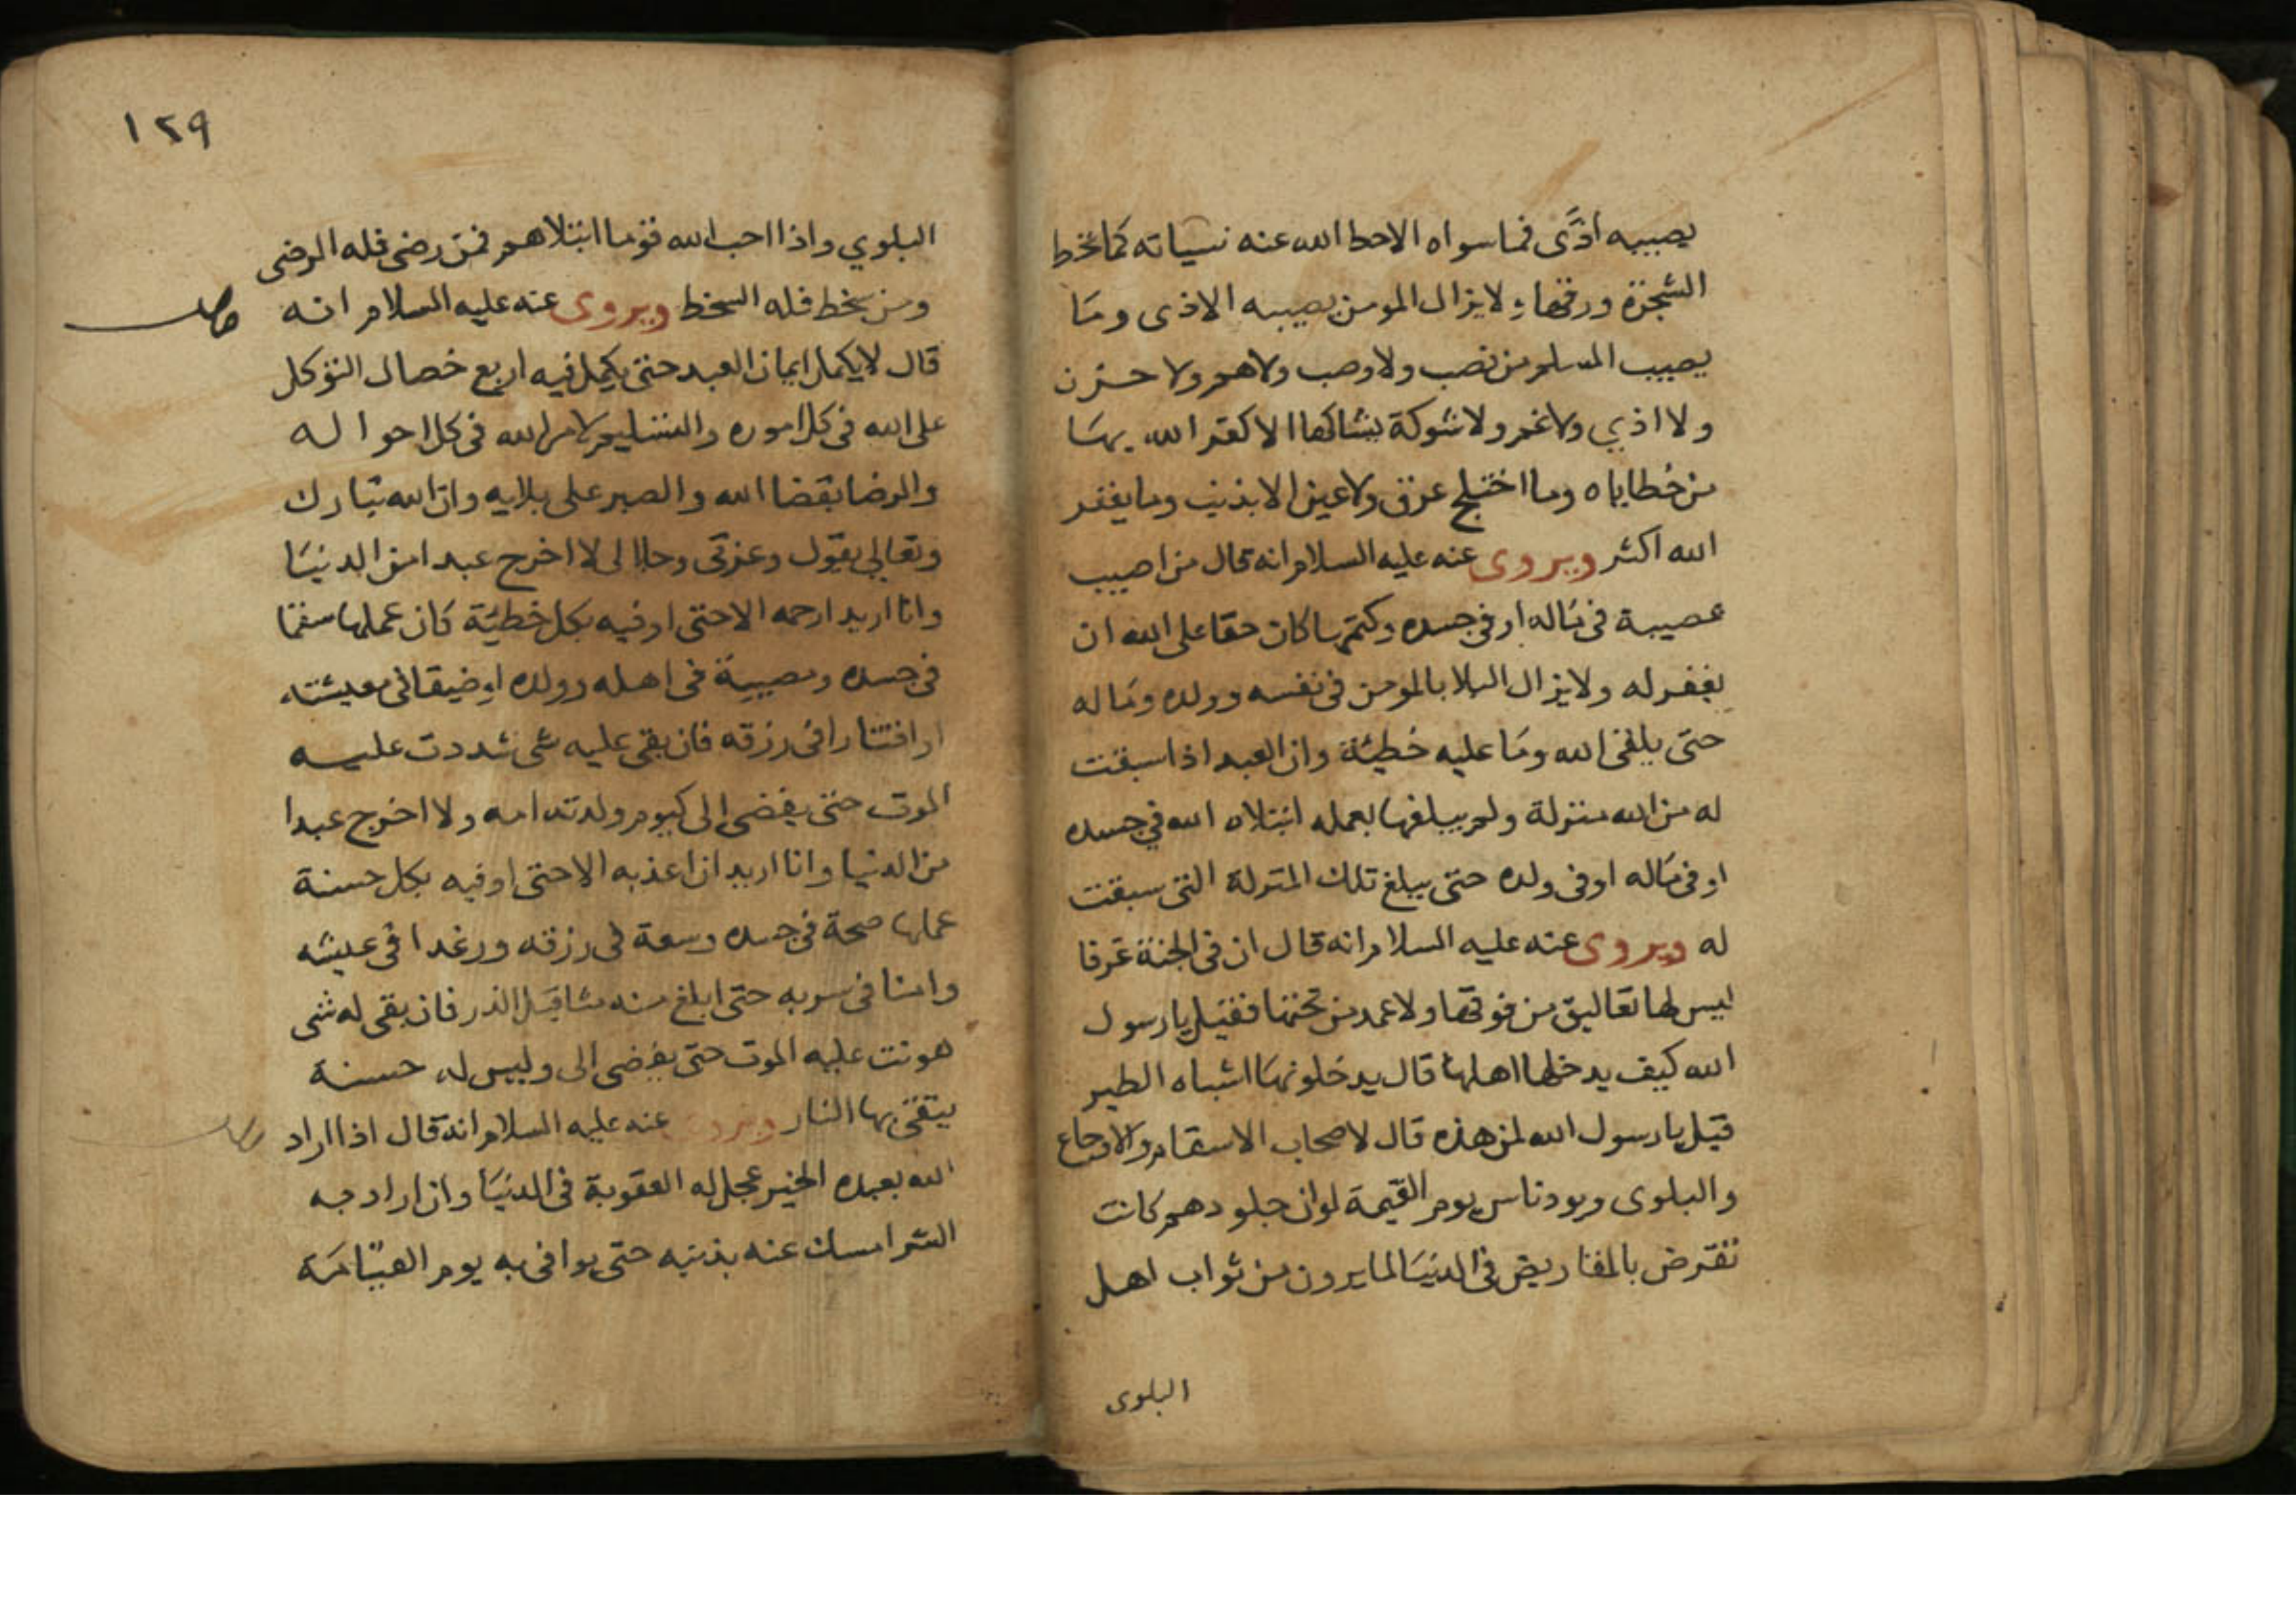 يصيبه اذًى فما سواه الا حط الله عنه سياته كما تحط
الشجرة ورقها ولا يزال المومن يصيبه الاذى وما
يصيب المسلم من نصب ولا وصب ولا هم ولا حزن
ولا اذي ولا غم ولا شوكة يشاكها الا كفر الله بها
من خطاياه وما اختلج عرق ولا عين الا بذنب وما يغفر
الله اكثر ويروى عنه عليه السلام انه قال من اصيب
بمصيبة في ماله او في جسده وكتمها كان حقا على الله ان
يغفر له ولا يزال البلا بالمومن في نفسه وولده وماله
حتى يلقى الله وما عليه خطيئة وان العبد اذا سبقت
له من الله منزلة ولم يبلغها بعمله ابتلاه الله في جسده
او في ماله او في ولده حتى يبلغ تلك المنزلة التي سبقت
له ويروى عنه عليه السلام انه قال ان في الجنة غرفا
ليس لها تعاليق من فوقها ولا عمد من تحتها فقيل يا رسول
الله كيف يدخلها اهلها قال يدخلونها اشباه الطير
قيل يا رسول الله لمن هذه قال لاصحاب الاسقام والاوجاع
والبلوى ويود ناس يوم القيمة لو ان جلودهم كانت
تقرض بالمقاريض في الدنيا لما يرون من ثواب اهل
البلوى
١٢٩
البلوي واذا احب الله قوما ابتلاهم فمن رضى فله الرضى
ومن سخط فله السخط ويروى عنه عليه السلام انه
قال لا يكمل ايمان العبد حتى يكمل فيه اربع خصال التوكل
على الله في كل اموره والتسليم لامر الله في كل احواله
والرضا بقضا الله والصبر على بلايه وان الله تبارك
وتعالى يقول وعزتي وجلالى لا اخرج عبدا من الدنيا
وانا اريد ارحمه الا حتى اوفيه بكل خطيّة كان عملها سقما
في جسده ومصيبة في اهله وولده او ضيقا في معيشته
او اقتتارا في رزقه فان بقى عليه شى شددت عليه
الموت حتى يفضى الى كيوم ولدته امه ولا اخرج عبدا
من الدنيا وانا اريد ان اعذبه الا حتى اوفيه بكل حسنة
عملها صحة في جسده وسعة في رزقه ورغدا في عيشه
وامنا في سربه حتى ابلغ منه مثاقيل الذر فان بقى له شى
هونت عليه الموت حتى يفضى الى وليس له حسنة
يتقى بها النار ويروى عنه عليه السلام انه قال اذا اراد
الله بعبده الخير عجل له العقوبة في الدنيا وان اراد به
الشر امسك عنه بذنبه حتى يوافى به يوم القيامة